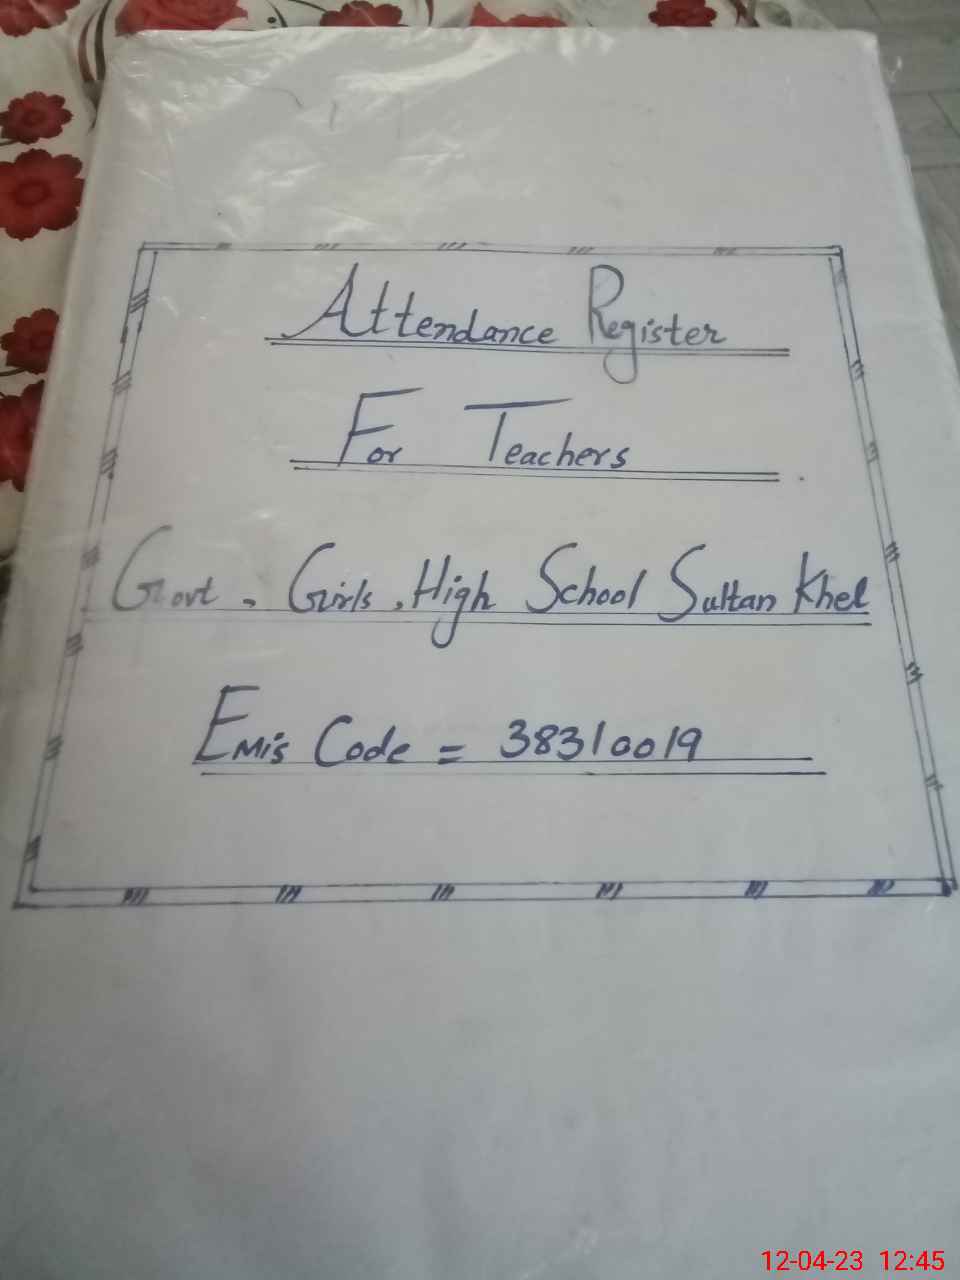 Attendance Register
For Teachers
Govt. Girls, High School Sultan Khel
Emis Code = 38310019
12-04-23 12:45